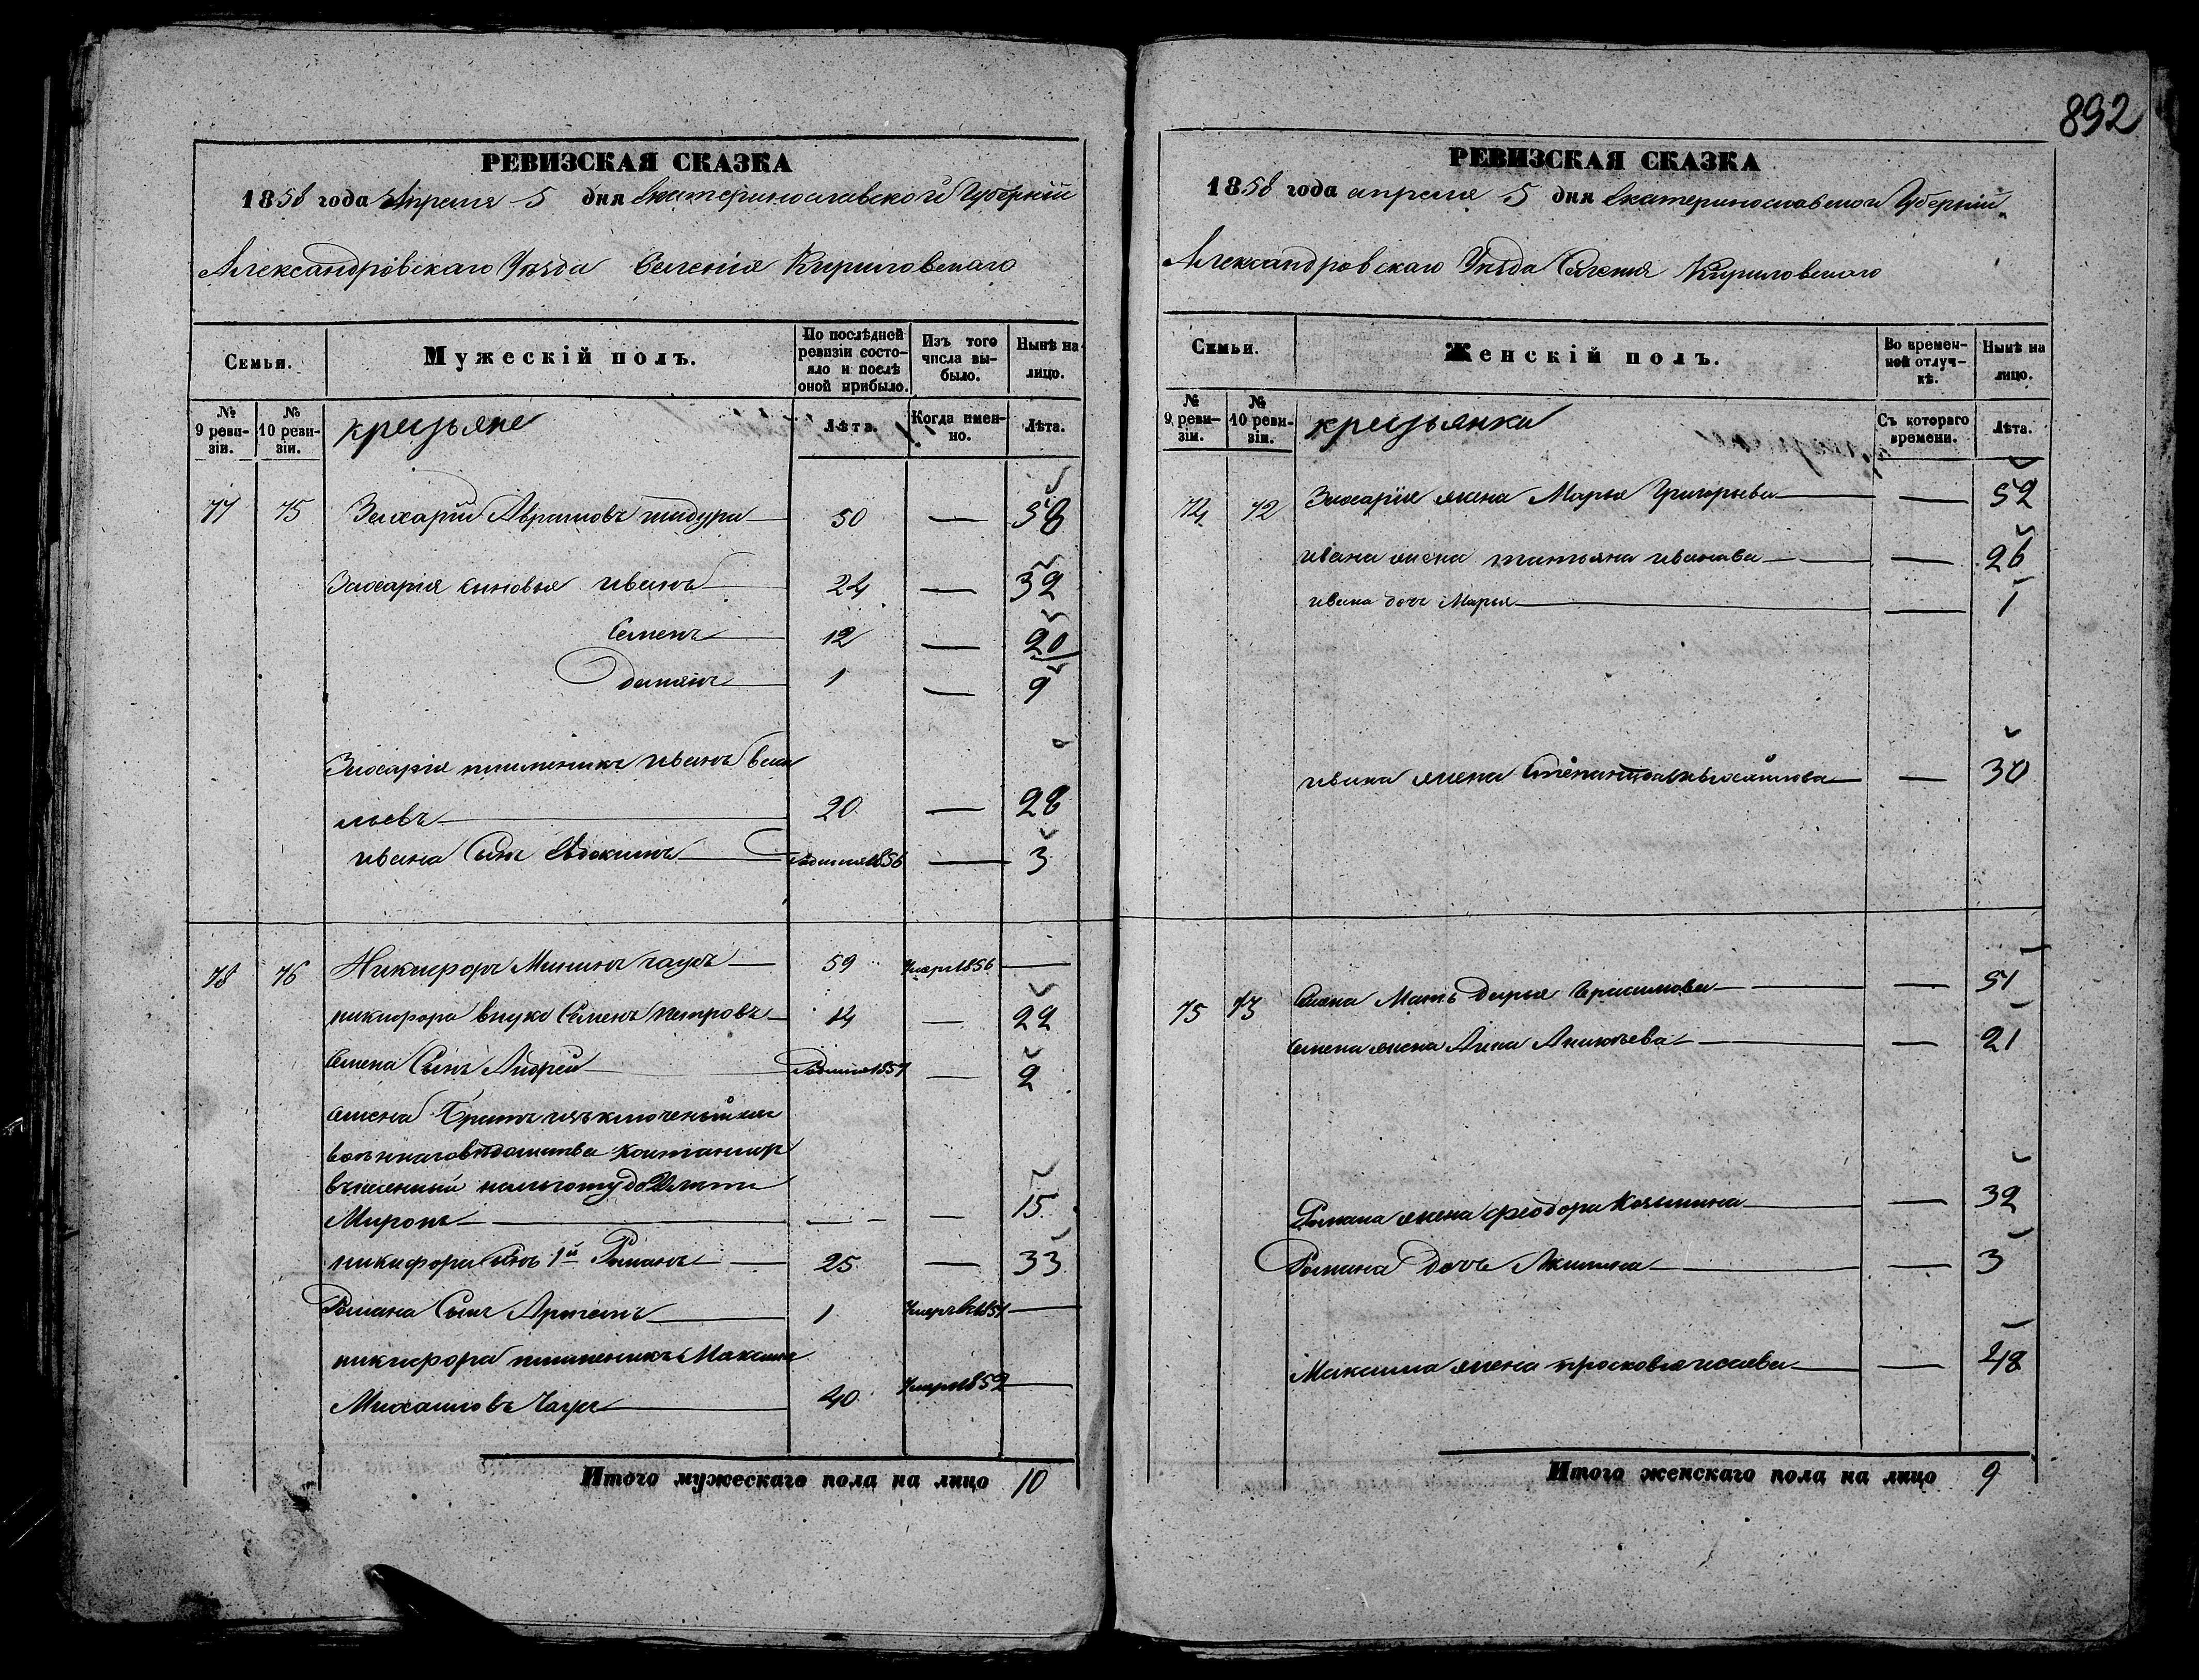 892
РЕВИЗСКАЯ СКАЗКА
1858 года Апреля 5 дня Екатеринославской Губерніи
Александровскаго Уѣзда Селенія Кириловскаго
Семьи.
Мужескій полъ.
По послѣдней ревизіи состояло и послѣ оной прибыло.
Изъ того числа выбыло.
Нынѣ на лицо.
№ 9 ревизіи.
№ 10 ревизіи.
крестьяне
Лѣта.
Когда именно.
Лѣта.
77 75 Захарій Аврамовъ шадура 50 — 58
Захарія сыновья иванъ 24 — 32
Семенъ 12 — 20
Демянъ 1 — 9
Захарія племеникъ иванъ Васи
льевъ 20 — 28
ивана Сынъ Євдокимъ родился 1856 — 3
78 76 Никифоръ Мининъ чаусъ 59 Умеръ 1856 —
никифора внукъ Семенъ Петровъ 14 — 22
Семена Сынъ Андрей Родился 1857 — 2
Семена Братъ изъключеный изъ
военнаго ведомства кантонир
Миронъ — — — 15
никифора Сынъ 1й Романъ — 25 — 33
Романа Сынъ Артемъ 1 Умеръ 1851 —
никифора племеникъ Максимъ
Михаиловъ Чаусъ 40 Умеръ 1852 —
Итого мужескаго пола на лицо 10
РЕВИЗСКАЯ СКАЗКА
1858 года апреля 5 дня Екатеринославской Губерніи
Александровскаго Уѣзда Селенія Кириловскаго
Семьи.
Женскій полъ.
Во временной отлучкѣ.
Нынѣ на лицо.
№ 9 ревизіи.
№ 10 ревизіи.
крестьянки
Съ котораго времени.
Лѣта.
74 72 Захарія жена Марья Григорьева — 52
ивана жена татьяна иванова — 26
ивана доч Марья — 1
ивана жена — 30
75 73 Семена Мать Дарья Герасимова — 51
Семена жена Анна Аникѣева — 21
Романа жена феодора Козьмина — 32
Романа Дочь Акилина — 3
Максима жена просковья исаева — 48
Итого женскаго пола на лицо 9